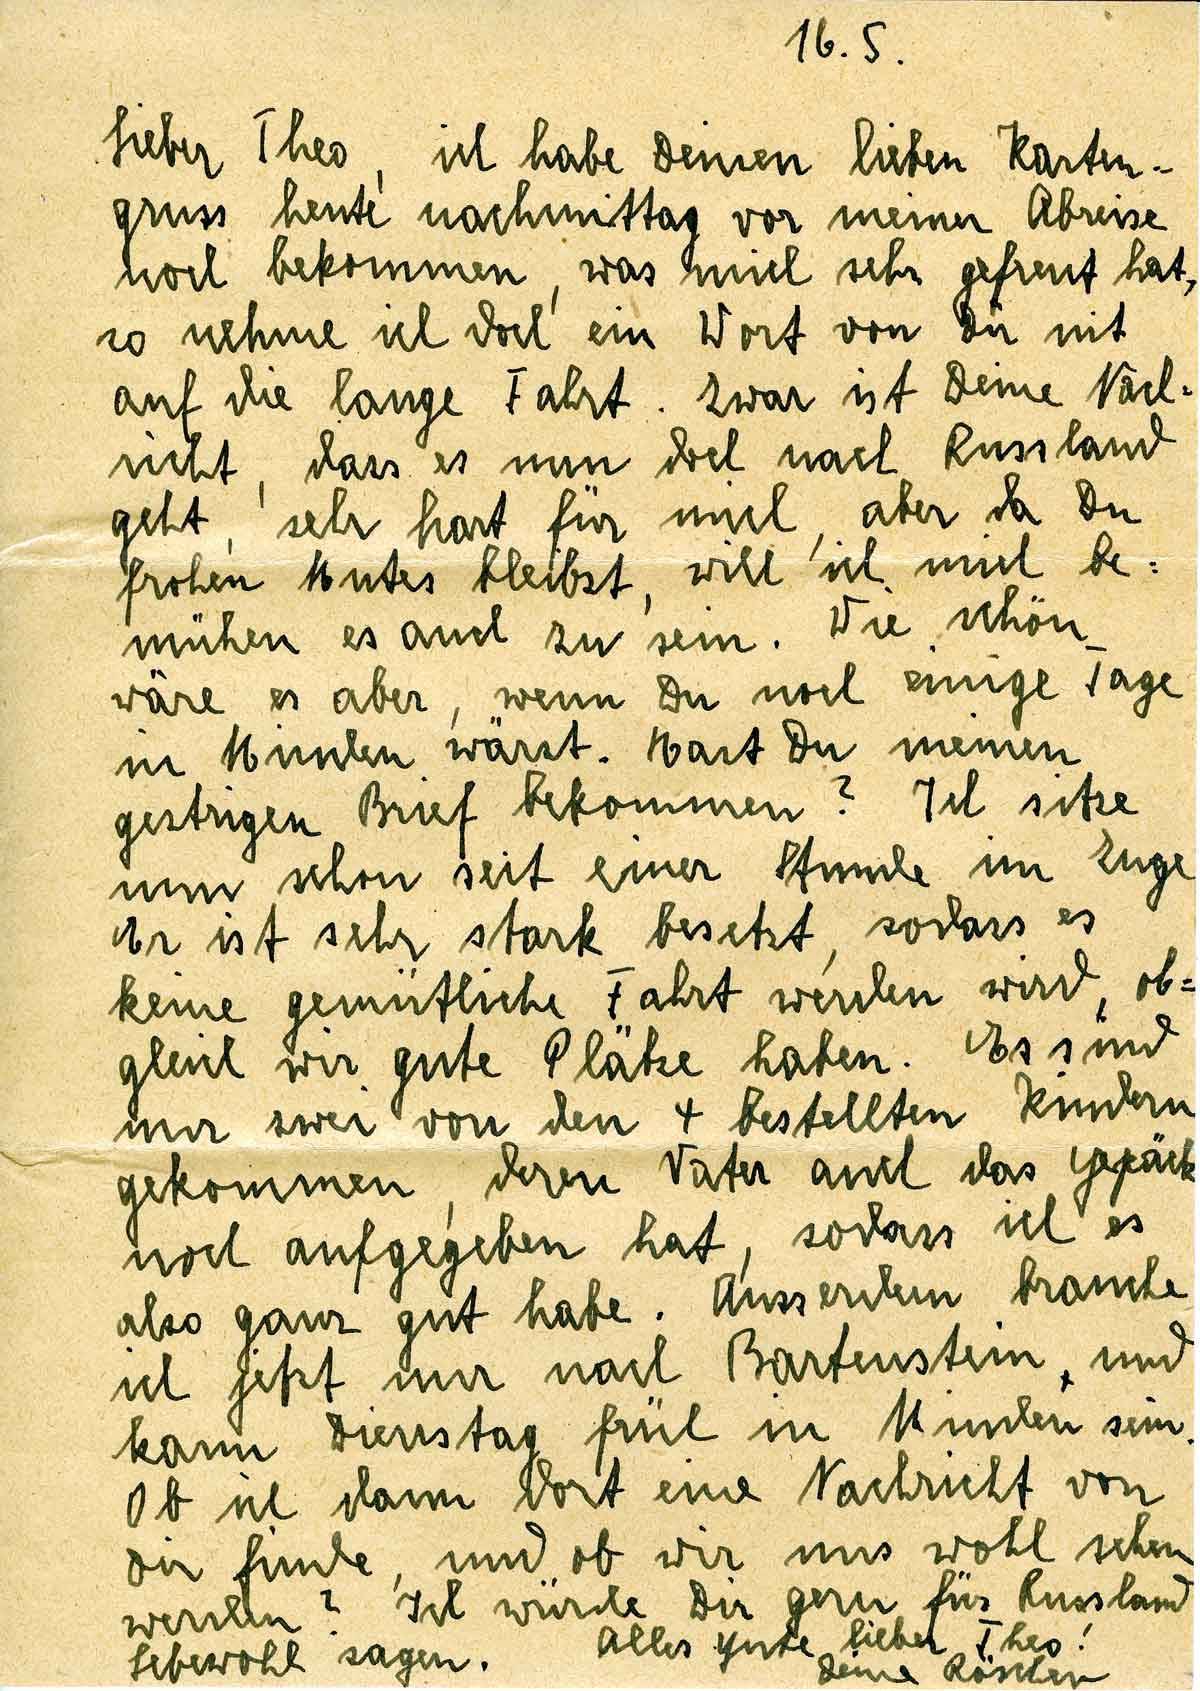 16.5.
Lieber Theo, ich habe Deinen lieben Karten-
gruss heute nachmittag vor meiner Abreise
noch bekommen, was mich sehr gefreut hat,
so nehme ich doch ein Wort von Dir mit
auf die lange Fahrt. Zwar ist Deine Nach-
richt, dass es nun doch nach Russland
geht, sehr hart für mich, aber da Du
frohen Mutes bleibst, will ich mich be-
mühen es auch zu sein. Wie schön
wäre es aber, wenn Du noch einige Tage
in Minden wärst. Hast Du meinen
gestrigen Brief bekommen? Ich sitze
nun schon seit einer Stunde im Zuge
Er ist sehr stark besetzt, sodass es
keine gemütliche Fahrt werden wird, ob-
gleich wir gute Plätze haben. Es sind
nur zwei von den 4 bestellten Kindern
gekommen, deren Vater auch das Gepäck
noch aufgegeben hat, sodass ich es
also ganz gut habe. Ausserdem brauche
ich jetzt nur nach Bartenstein, und
kann Dienstag früh in Minden sein.
Ob ich dann dort eine Nachricht von
Dir finde, und ob wir uns wohl sehen
werden? Ich würde Dir gern für Russland
Lebewohl sagen. Alles Gute lieber Theo!
Deine Röschen